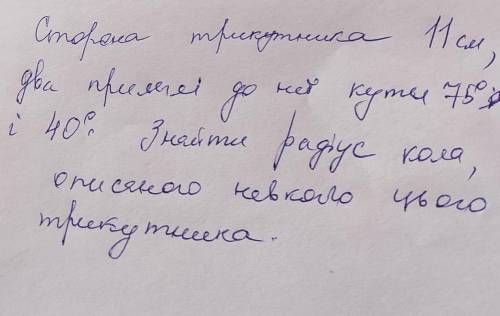 Сторона трикутника 11 см,
два прилеглі до неї кути 75°
і 40°. Знайти радіус кола,
описаного навколо цього
трикутника.